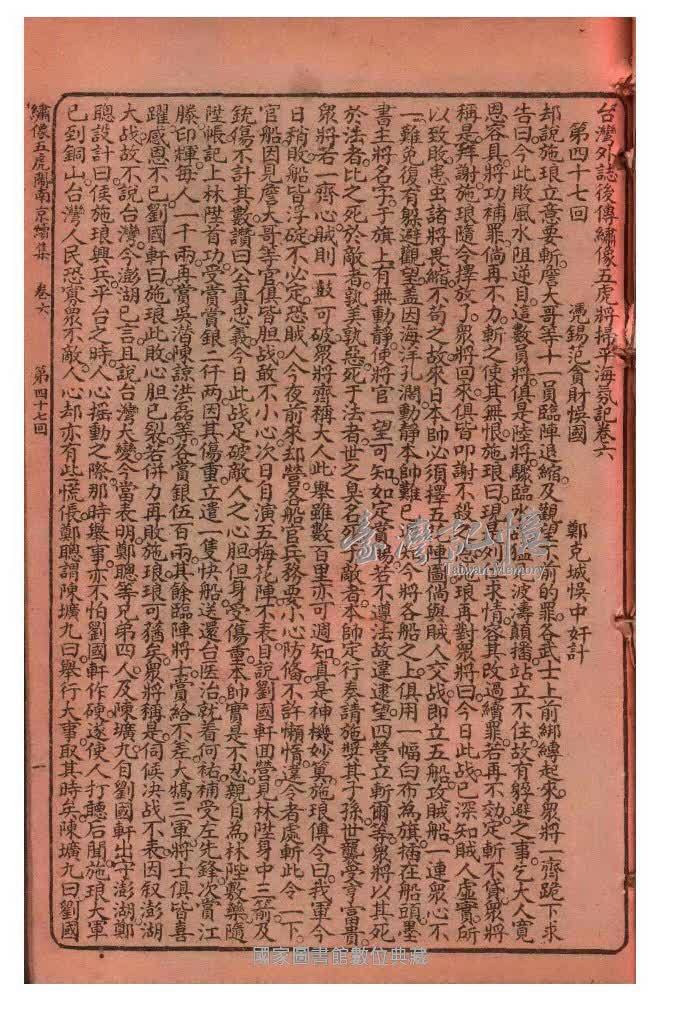 台灣外誌後傳繡像五虎將掃平海氛記卷六
第四十七回 馮錫范貪財悞國 鄭克塽悞中奸計
却說施琅立意要斬詹大哥等十一員臨陣退縮及觀望不前的罪各武士上前綁縛起來眾將一齊跪下求
告曰今此敗風水阻逆目這數員將俱是陸將驟臨水战猛 波濤顛播站立不住故有躲避之事乞大人寬
恩容具將功補罪倘再不力斬之使其無恨施琅曰現是列位求情容其改過續罪若再不効定斬不貸眾將
稱是拜謝施琅隨令擇放了眾將回來俱皆叩謝不殺之恩施琅再對眾將曰今日此战已深知賊人虛實所
以致敗患虫諸將畏縮不苟之故來日本帥必須擇五梅陣圖倘與賊人交战即立五船攻賊船一連眾心不
一難免復有躲避觀望蓋因海洋孔濶動靜本帥難已 今將各船之上俱用一幅白布為旗插在船頭墨
書主將名字于旗上有無動靜使將官一望可知如定賞賜若不遵法故違逮望四營立斬爾等眾將以其死
於法者比之死於敵者孰美孰惡死于法者世之臭名死 敵者本帥定行奏請施獎其子孫世襲夢享富貴
眾將若一齊心賊則一鼓可破眾將齊稱大人此舉雖數百里亦可週知真是神機妙筭施琅傳令曰我軍今
日稍敗船皆浮碇不必定恐賊人今夜前來却營各船官兵務要小心防偹不許懶惰違令者處斬此令一下
官船因見詹大哥等官俱皆胆战敢不小心次日自演五梅花陣不表目說劉國軒回營見林陞身中三箭及
銃傷不計其數讚曰公真忠義今日此战足破敵人之心胆但身受傷重本帥實是不忍親自為林陞敷藥隨
陞帳記上林陞首功受賞賞銀二仟两因其傷重立遣一隻快船送還台医治就着何祐補受左先鋒次賞江
滕印輝每人一千兩再賞吳潛陳諒洪磊等各賞銀伍百兩其餘臨陣將士賞給不差大犒三軍將士俱皆喜
躍感恩不已劉國軒曰施琅此敗心胆已裂若併力再敗施琅琅可獲矣眾將稱是伺候決战不表因叙澎湖
大战故不說台灣今澎湖已言且說台灣大變今當表明鄭聰等兄弟四人及陳壙九自劉國軒出守澎湖鄭
聰設計曰俟施琅興兵平台之時人心搖動之際那時舉事亦不怕劉國軒作硬遂使人打聽后聞施琅大軍
已到銅山台灣人民恐寡眾不敵人人心却亦有此一慌倀鄭聰謂陳壙九曰舉行大事取其時矣陳壙九曰劉國
繡像五虎鬧南京續集 卷六 第四十七回 一
臺灣記憶
Taiwan Memory
國家圖書館數位典藏